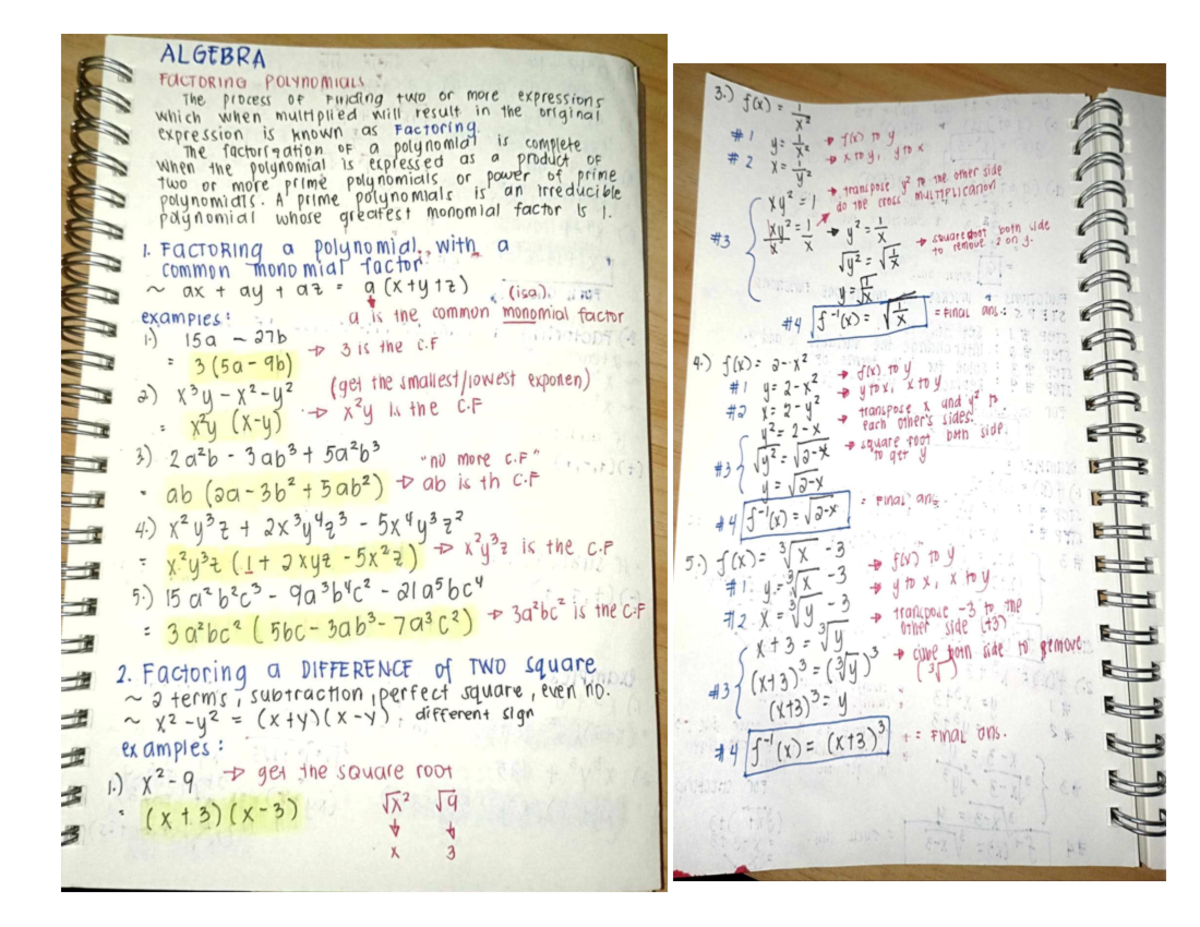 ALGEBRA
FACTORING POLYNOMIALS :
The process of finding two or more expressions
which when multiplied will result in the original
expression is known as Factoring.
The factorization of a polynomial is complete
when the polynomial is expressed as a product of
two or more prime polynomials or power of prime
polynomials. A prime polynomials is an irreducible
polynomial whose greatest monomial factor is 1.
1. FACTORING a polynomial, with a
common monomial factor
~ ax + ay + az = a (x+y+z)
(isa)
examples:
a is the common monomial factor
1.) 15a - 27b
= 3 (5a - 9b) → 3 is the C.F
2) x³y - x² - y² (get the smallest/lowest exponen)
= x²y (x-y) → x²y is the C.F
3.) 2a²b - 3ab³ + 5a²b³ "no more C.F"
= ab (2a - 3b² + 5ab²) → ab is th C.F
4.) x²y³z + 2x³y⁴z³ - 5x⁴y³z²
= x²y³z (1 + 2xyz - 5x²z) → x²y³z is the C.F
5.) 15 a²b²c³ - 9a³b⁴c² - 21a⁵bc⁴
= 3a²bc² (5bc - 3ab³ - 7a³c²) → 3a²bc² is the C.F
2. Factoring a DIFFERENCE of TWO square
~ 2 terms, subtraction, perfect square, even no.
~ x² - y² = (x+y)(x-y), different sign
examples :
1.) x² - 9 → get the square root
= (x + 3)(x - 3) √x² √9
x 3
3.) f(x) = 1/x²
#1 y = 1/x² → f(x) to y
#2 x = 1/y² → x to y, y to x
xy² = 1 → transpose y² to the other side
do the cross multiplication
#3 xy²/x = 1/x → y² = 1/x → square root both side
to remove 2 on y.
√y² = √1/x
y = √1/x
#4 f⁻¹(x) = √1/x = Final ans.
4.) f(x) = 2 - x²
#1 y = 2 - x² → f(x) to y
#2 x = 2 - y² → y to x, x to y
y² = 2 - x → transpose x and y² to
each other's sides.
#3 √y² = √2-x → square root both side
to get y
y = √2-x
#4 f⁻¹(x) = √2-x = Final ans.
5.) f(x) = ³√x - 3
#1 y = ³√x - 3 → f(x) to y
#2 x = ³√y - 3 → y to x, x to y
x + 3 = ³√y → transpose -3 to the
other side (+3)
#3 (x+3)³ = (³√y)³ → cube both side to remove
(³√)
(x+3)³ = y
#4 f⁻¹(x) = (x+3)³ = Final ans.